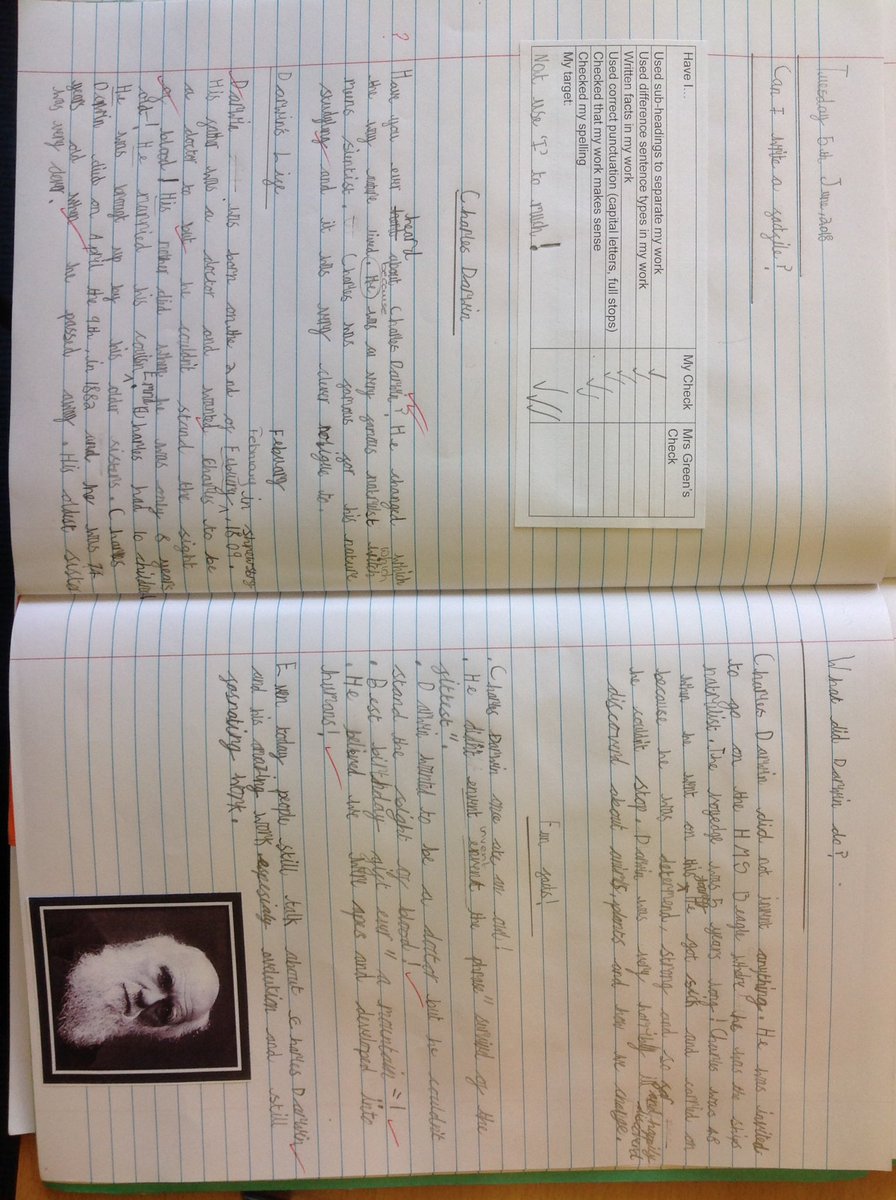 Tuesday 5th June, 2018
Can I write a factfile?
Have I...
My Check
Mrs Green's Check
Used sub-headings to separate my work
Used difference sentence types in my work
Written facts in my work
Used correct punctuation (capital letters, full stops)
Checked that my work makes sense
Checked my spelling
My target:
Not use 'I' to much!
Charles Darwin
?
heard
Have you ever about Charles Darwin? He changed which
because
the way were lived. (He) was a very famous natrulist witch
which
mens sientist. Charles was famous for his nature
studying and it was very clever
Darwin's Life
Febuary
Febuary in shrewsbry
Darwin was born on the 2nd of Febuary, 1809.
His father was a doctor and wanted Charles to be
a doctor to but he couldn't stand the sight
of blood! His mother died where he was only 8 years
old! He married his cousin Emma. Charles had 10 children
He was brought up by his older sisters. Charles
Darwin died on April the 9th, in 1882 and he was 74
years old when he passed away. His oldest sister
was very clever.
What did Darwin do?
Charles Darwin did not invent anything. He was invited
to go on the HMS Beagle where he was the ships
natrulist. The was 5 years long! Charles was 48
when he went on this He got sick and carried on
because he was determend, strong and so
he couldn't stop. Darwin was very, horribly ill and happily
discoverd about animls, plants and how we change.
Fun facts!
. Charles Darwin once ate an owl!
invent
. He didn't envent envent the phrase" survivel of the
fittest".
. Darwin wanted to be a doctor but he couldn't
stand the sight of blood!
. Best birthday gift ever" a mountain =!
. He beleved we were apes and developed into
humans!
Even today people still talk about Charles Darwin
and his amazing work, especialy evolution and still
fasnating work.